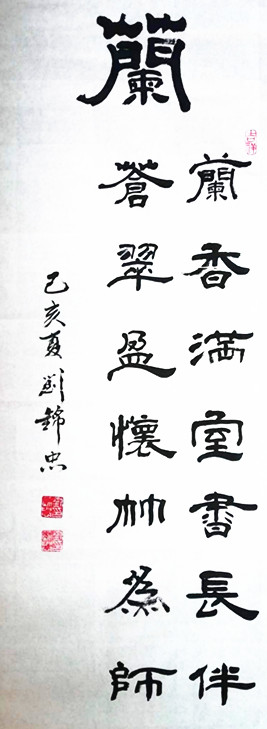 蘭
蘭香滿室書長伴
蒼翠盈懷竹為師
己亥夏劉錦忠